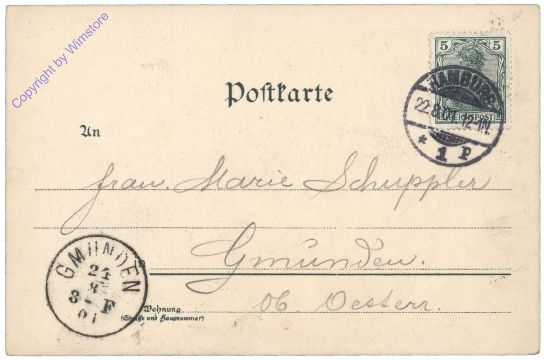 Copyright by Wimstore
5 5
REICHSPOST
HAMBURG
22.8.01. 12-1N.
* 1 P
Postkarte
An
frau. Marie Schuppler
Gmünden.
ob Oesterr.
GMUNDEN
24
8
F
01
Wohnung
(Straße und Hausnummer)